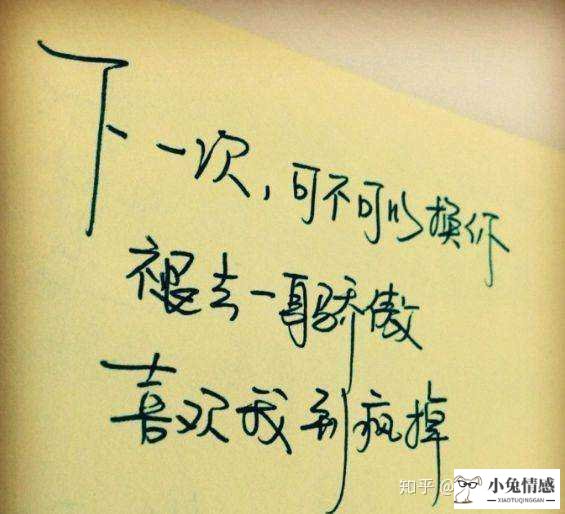 下一次，可不可以换你
褪去一身骄傲
喜欢我到疯掉
知乎 @
小兔情感
XIAOTUQINGGAN